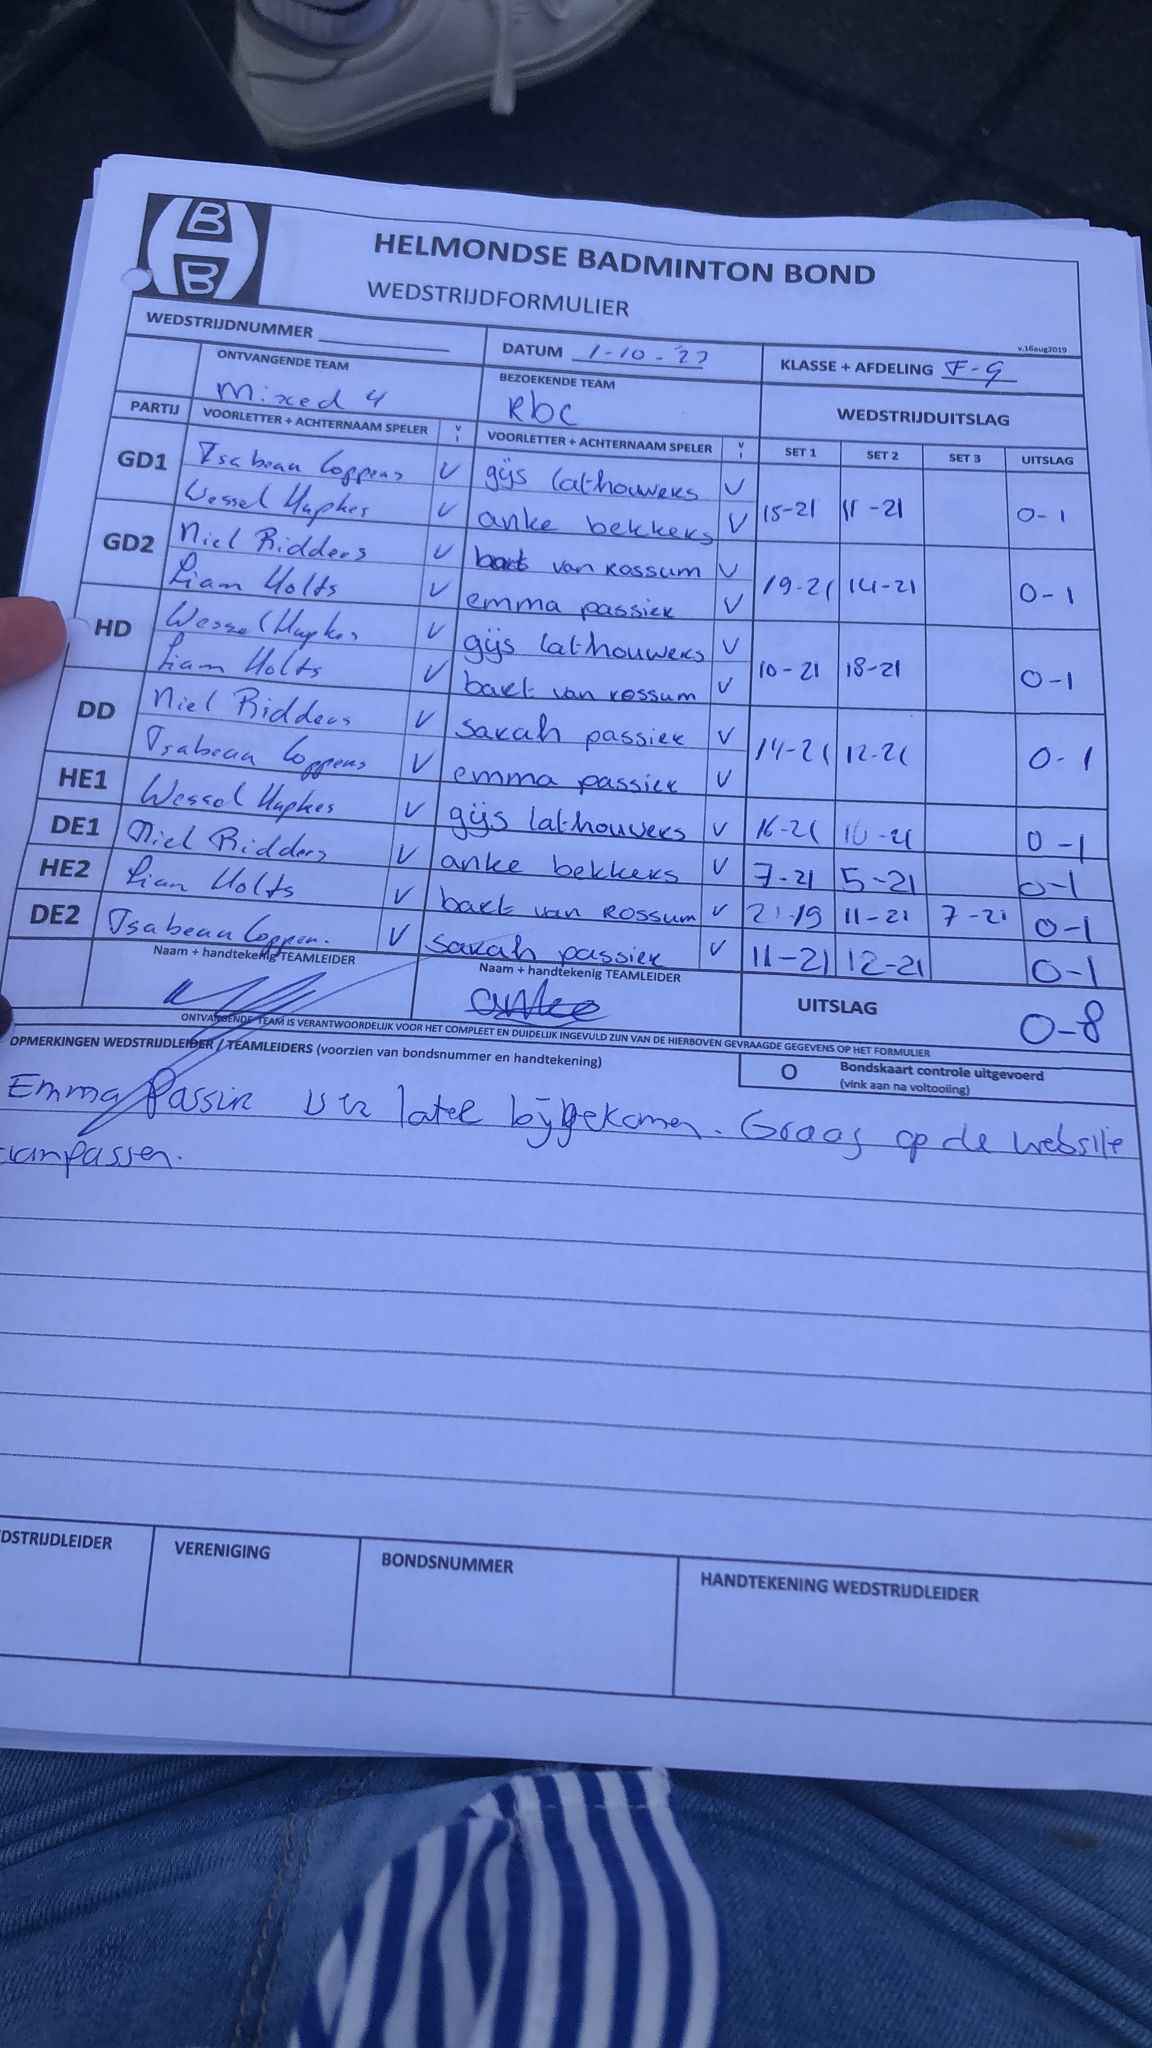 HELMONDSE BADMINTON BOND
WEDSTRIJDFORMULIER
v.16aug2019
WEDSTRIJDNUMMER DATUM 1-10-'22 KLASSE + AFDELING F-G
ONTVANGENDE TEAM BEZOEKENDE TEAM WEDSTRIJDUITSLAG
Mixed 4 Rbc
PARTIJ VOORLETTER + ACHTERNAAM SPELER V I VOORLETTER + ACHTERNAAM SPELER V I SET 1 SET 2 SET 3 UITSLAG
GD1 Isabeau Coppens V gijs lathouwers V 15-21 11-21 0-1
Wessel Hupkes V anke bekkers V
GD2 Niel Ridders V bart van rossum V 19-21 14-21 0-1
Liam Holts V emma passier V
HD Wessel Hupkes V gijs lathouwers V 10-21 18-21 0-1
Liam Holts V bart van rossum V
DD Niel Ridders V sarah passier V 14-21 12-21 0-1
Isabeau Coppens V emma passier V
HE1 Wessel Hupkes V gijs lathouwers V 16-21 10-21 0-1
DE1 Niel Ridders V anke bekkers V 7-21 5-21 0-1
HE2 Liam Holts V bart van rossum V 21-19 11-21 7-21 0-1
DE2 Isabeau Coppen. V sarah passier V 11-21 12-21 0-1
Naam + handtekenig TEAMLEIDER Naam + handtekenig TEAMLEIDER UITSLAG 0-8
anke
ONTVANGENDE TEAM IS VERANTWOORDELIJK VOOR HET COMPLEET EN DUIDELIJK INGEVULD ZIJN VAN DE HIERBOVEN GEVRAAGDE GEGEVENS OP HET FORMULIER
OPMERKINGEN WEDSTRIJDLEIDER / TEAMLEIDERS (voorzien van bondsnummer en handtekening)
O Bondskaart controle uitgevoerd
(vink aan na voltooiing)
Emma Passier is later bijgekomen. Graag op de website
aanpassen.
DSTRIJDLEIDER VERENIGING BONDSNUMMER HANDTEKENING WEDSTRIJDLEIDER